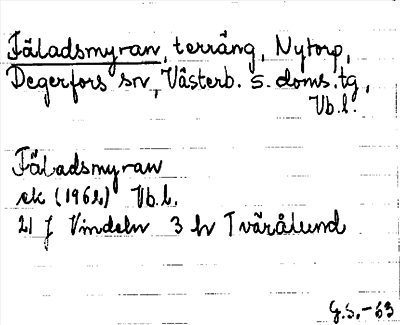 Fäladsmyran, terräng, Nytorp,
Degerfors sn, Västerb. s. doms.tg,
Vb.l.
Fäladsmyran
ek (1962) Vb.l.
21 J Vindeln 3 h Tvärålund
G.S.-63